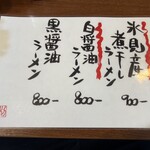 氷見産
煮干し
ラーメン
900-
白醤油
ラーメン
800-
黒醤油
ラーメン
800-